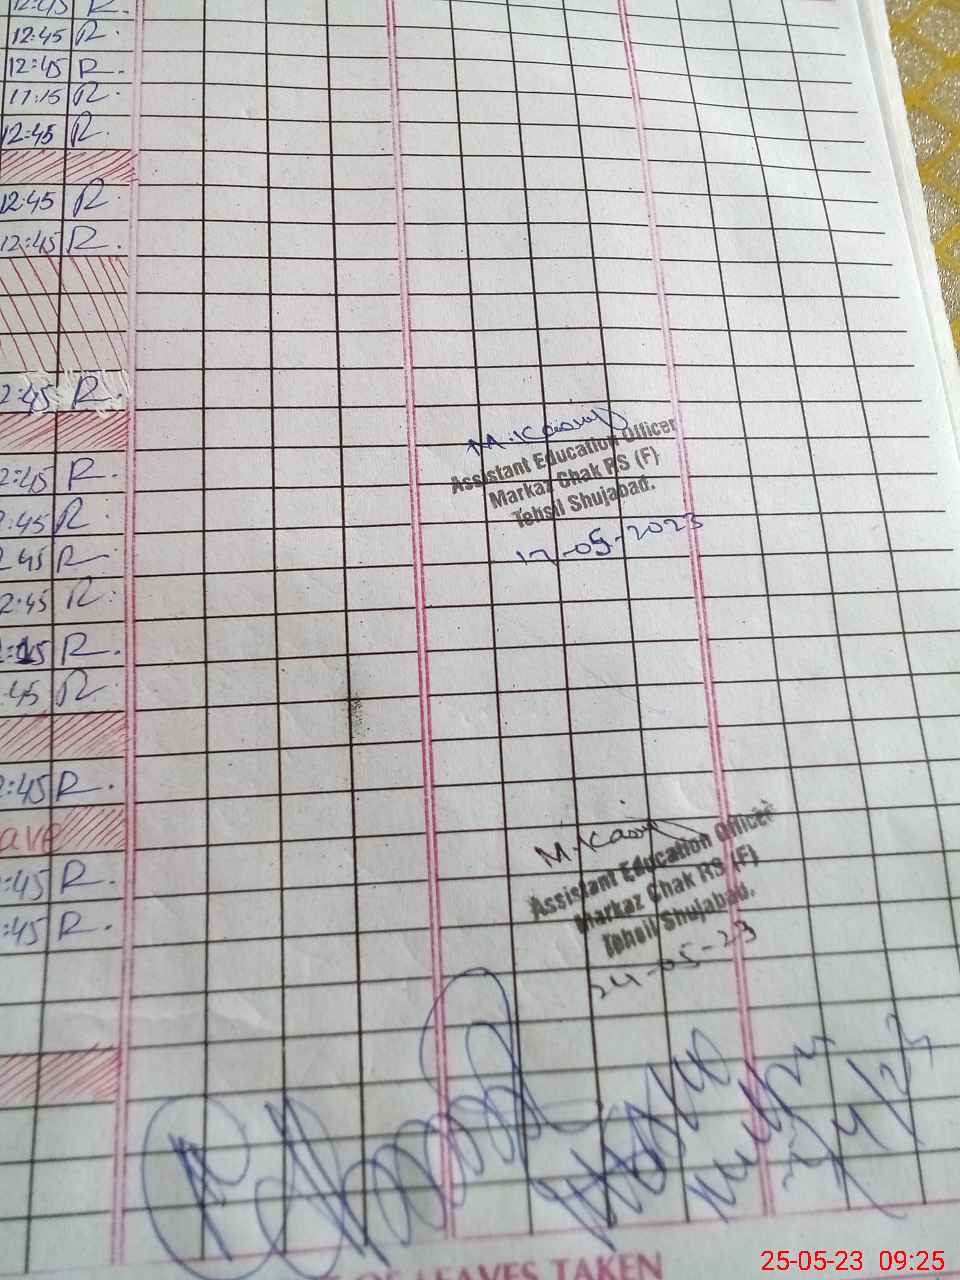 12:45 R.
12:45 R.
12:45 R.
17:15 R.
12:45 R.
12:45 R.
12:45 R.
2:45 R.
2:45 R.
2:45 R.
2:45 R.
2:45 R.
R.
:45 R.
M. Kasim
Assistant Education Officer
Markaz Chak RS (F)
Tehsil Shujabad.
17-05-2023
2:45 R.
ave
:45 R.
:45 R.
M. Kasim
Assistant Education Officer
Markaz Chak RS (F)
Tehsil Shujabad.
24-05-23
OF LEAVES TAKEN
25-05-23 09:25